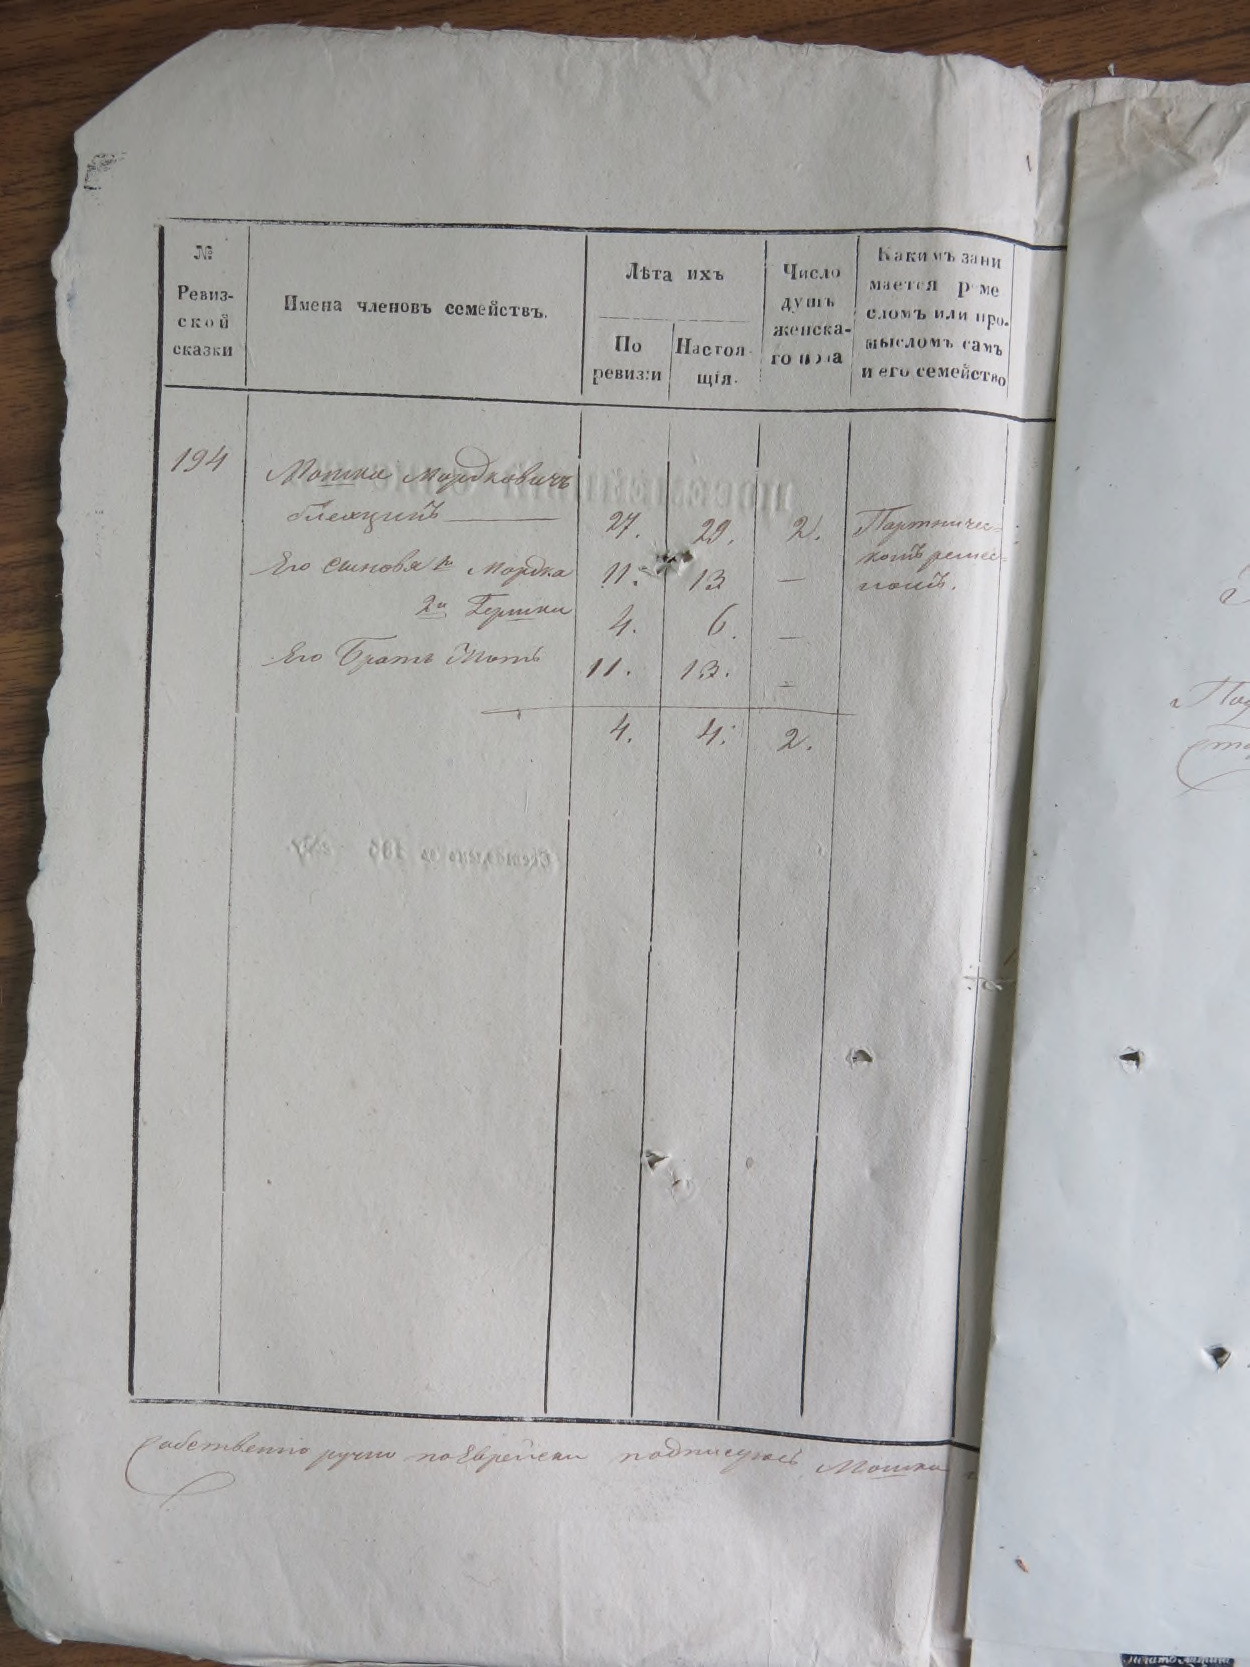 №
Ревиз-
ской
сказки
Имена членовъ семействъ.
Лѣта ихъ
По
ревизіи
Настоя-
щія.
Число
душъ
женска-
го пола
Какимъ зани
мается реме
сломъ или про-
мысломъ самъ
и его семейство
194
Мошка Мордковичъ
27. 29. 2. Портничес-
Его сыновья 1й Мордка 11. 13 — комъ ремес-
2й Гершка 4. 6. — ломъ.
Его Братъ 11. 13. —
4. 4. 2.
Собственно ручно поЕврейски подписуюсь Мошка